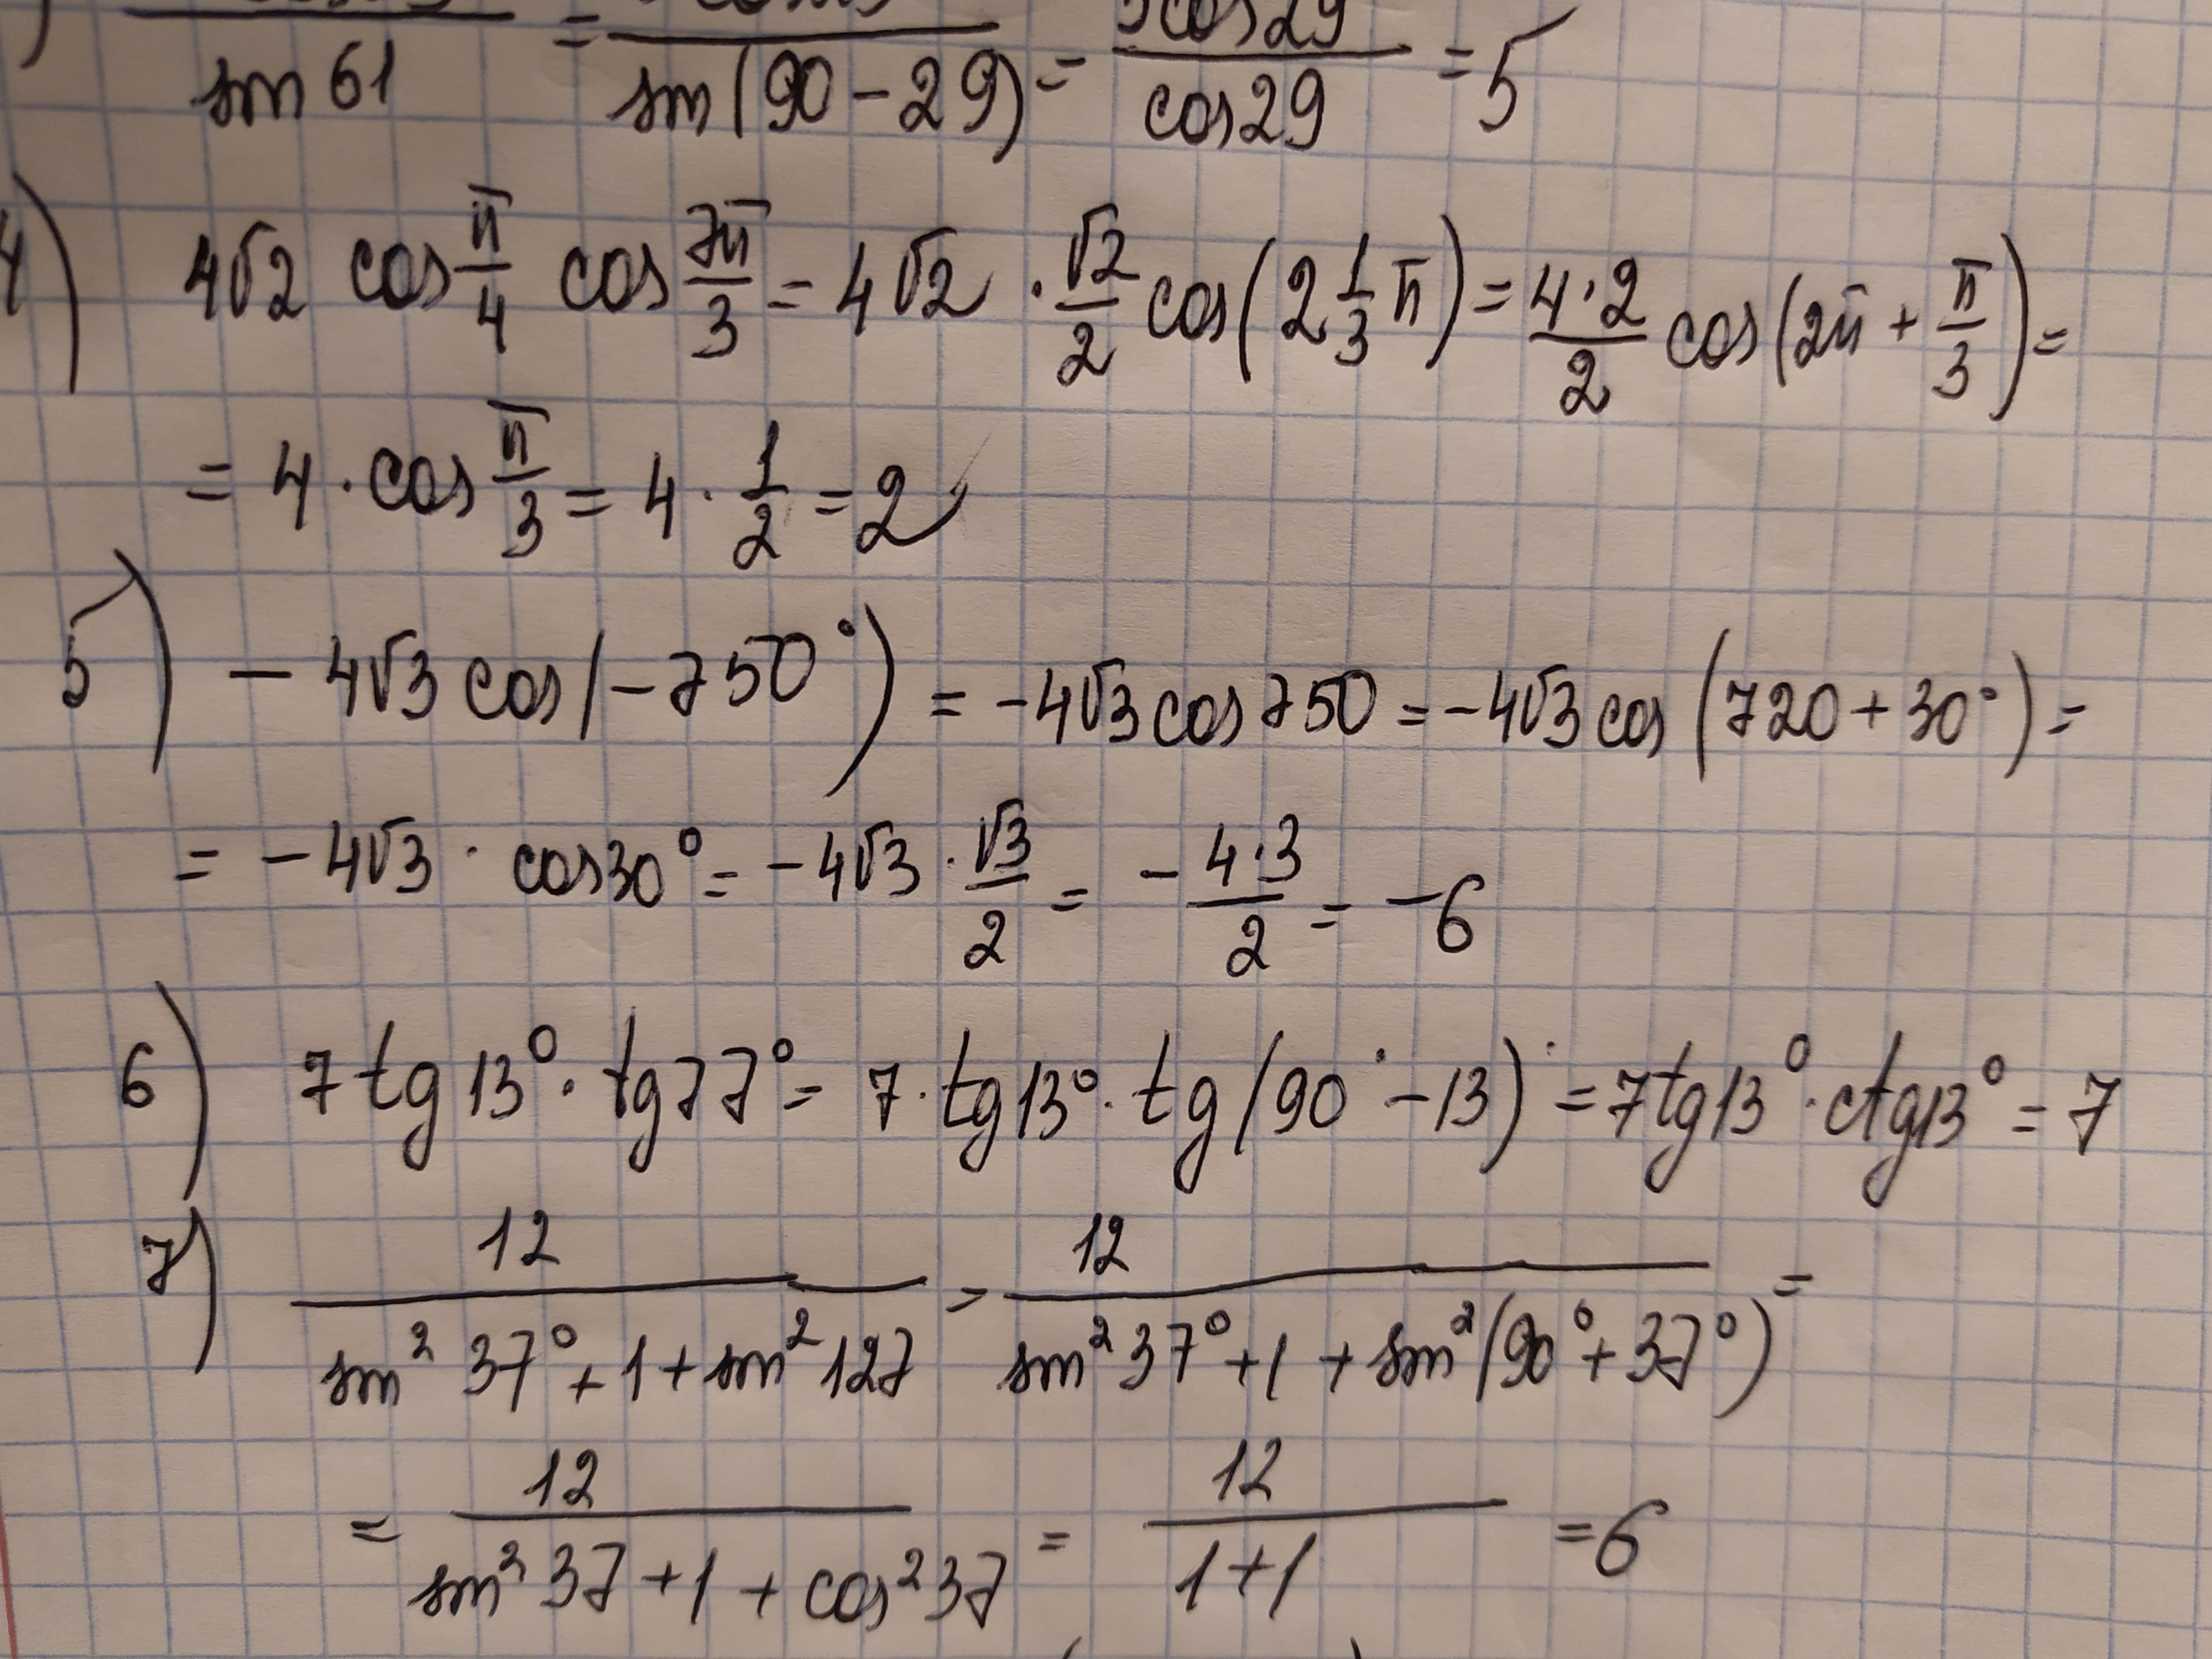 sin 61 = sin(90 - 29) = 5cos29 / cos29 = 5
4) 4√2 cos π/4 cos 7π/3 = 4√2 · √2/2 cos(2 1/3 π) = 4·2/2 cos(2π + π/3) =
= 4 · cos π/3 = 4 · 1/2 = 2
5) - 4√3 cos(-750°) = -4√3 cos 750 = -4√3 cos (720 + 30°) =
= -4√3 · cos30° = -4√3 · √3/2 = - 4·3/2 = -6
6) 7 tg 13° · tg 77° = 7 · tg 13° · tg(90° - 13)° = 7tg13° · ctg13° = 7
7) 12 / sin² 37° + 1 + sin² 127 = 12 / sin² 37° + 1 + sin²(90° + 37°) =
= 12 / sin² 37 + 1 + cos² 37 = 12 / 1 + 1 = 6